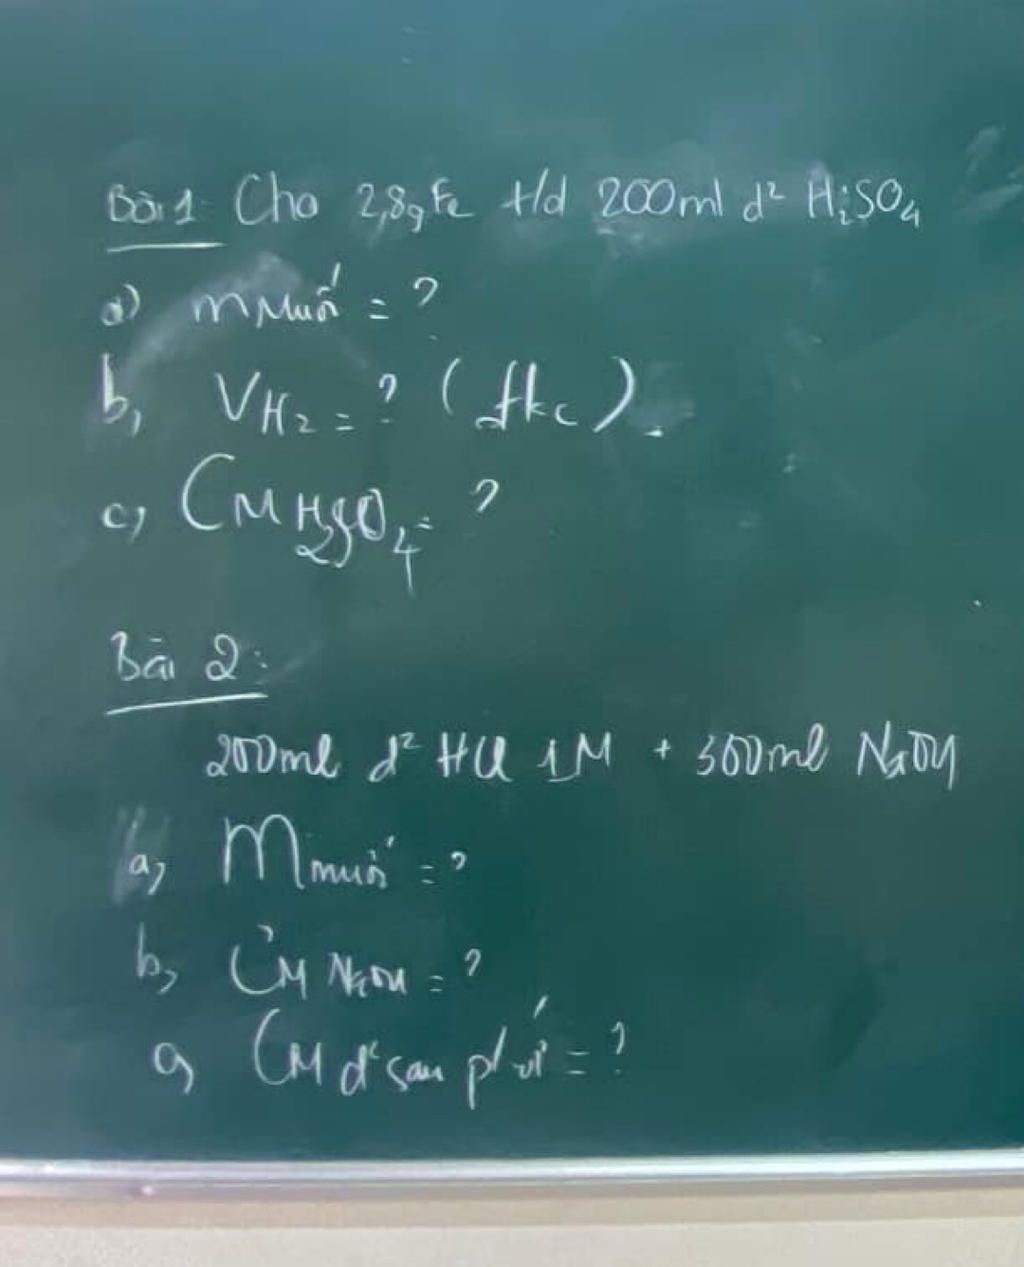 Bài 1: Cho 2,8g Fe t/d 200ml d² H₂SO₄
a) m muối = ?
b, V H₂ = ? (đkc).
c, CM H₂SO₄ = ?
Bài 2:
200ml d² HCl 1M + 300ml NaOH
a, m muối = ?
b, CM NaOH = ?
c, CM d² sau p/ứ = ?